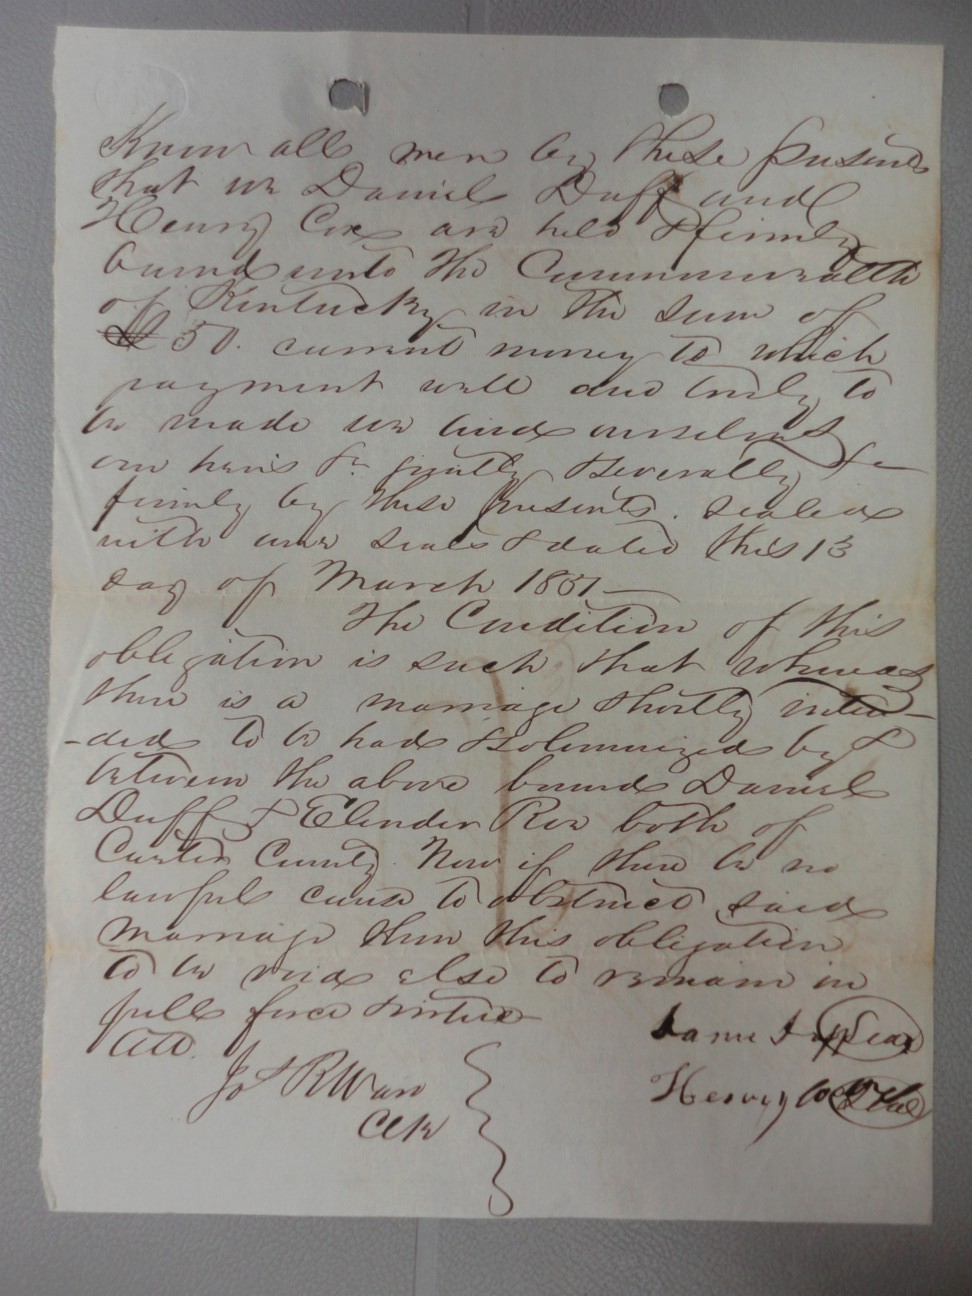 Know all men by these presents
that we Daniel Duff and
Henry Cox are held & firmly
bound unto the Commonwealth
of Kentucky in the sum of
£ 50. current money to which
payment well and truly to
be made we bind ourselves
our heirs &c jointly & severally &
firmly by these presents. sealed
with our seals & dated this 13
day of March 1851—
The Condition of this
obligation is such that whereas
there is a marriage shortly inten-
-ded to be had & solemnized by &
between the above bound Daniel
Duff & Elender Roe both of
Carter County. Now if there be no
lawful cause to obstruct said
marriage then this obligation
to be void else to remain in
full force & virtue
Att.
Daniel Duff Seal
Henry Cox Seal
Jos R Ward
Clk